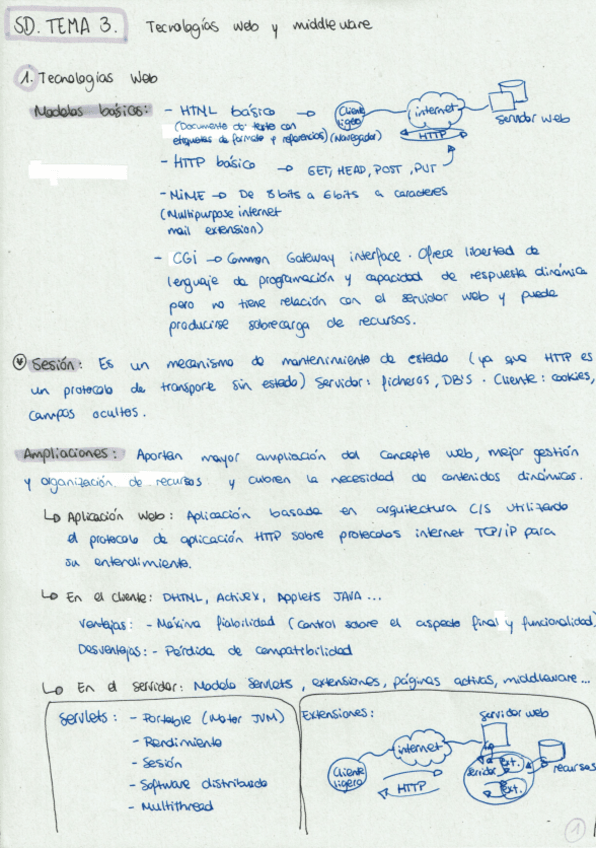 SD. TEMA 3. Tecnologías web y middleware
1. Tecnologías Web
Modelos básicos: - HTML básico → Cliente ligero internet servidor web
(Documento de texto con
etiquetas de formato y referencias) (Navegador) HTTP
- HTTP básico → GET, HEAD, POST, PUT
- MiME → De 8 bits a 6 bits a caracteres
(Multipurpose internet
mail extension)
- CGi → Common Gateway interface. Ofrece libertad de
lenguaje de programación y capacidad de respuesta dinámica
pero no tiene relación con el servidor web y puede
producirse sobrecarga de recursos.
* Sesión: Es un mecanismo de mantenimiento de estado (ya que HTTP es
un protocolo de transporte sin estado) Servidor: ficheros, DB's. Cliente: cookies,
campos ocultos.
Ampliaciones: Aportan mayor ampliación del concepto web, mejor gestión
y organización de recursos y cubren la necesidad de contenidos dinámicos.
↳ Aplicación Web: Aplicación basada en arquitectura C/S utilizando
el protocolo de aplicación HTTP sobre protocolos internet TCP/iP para
su entendimiento.
↳ En el cliente: DHTML, Activex, Applets JAVA...
Ventajas: - Máxima fiabilidad (control sobre el aspecto final y funcionalidad)
Desventajas: - Pérdida de compatibilidad
↳ En el servidor: Modelo Servlets, extensiones, páginas activas, middleware...
Servlets: - Portable (Motor JVM)
- Rendimiento
- Sesión
- Software distribuido
- Multithread
Extensiones:
servidor web
internet
Cliente ligero
HTTP
servidor
Ext.
Ext.
recursos
1